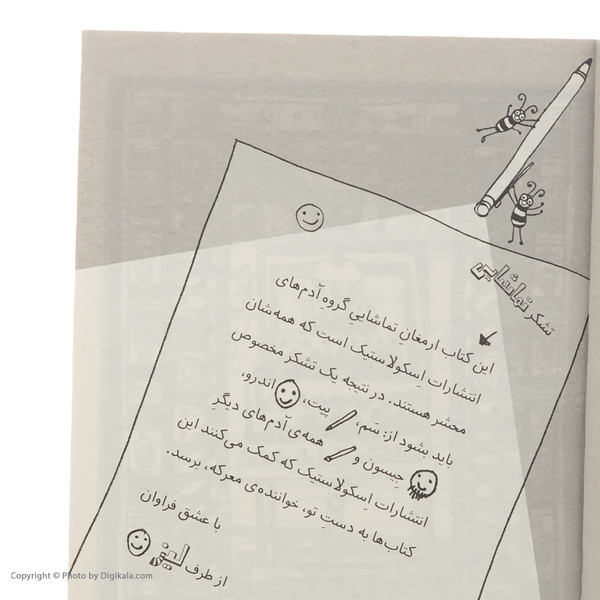 تشکر تماشایی
این کتاب ارمغانِ تماشاییِ گروهِ آدم‌های
انتشارات اِسکولاستیک است که همه‌شان
محشر هستند. در نتیجه یک تشکر مخصوص
باید بشود از: سَم، پیت، اندرو،
جیسون و همه‌ی آدم‌های دیگرِ
انتشارات اِسکولاستیک که کمک می‌کنند این
کتاب‌ها به دستِ تو، خواننده‌ی معرکه، برسد.
با عشق فراوان
از طرف لیز
Copyright © Photo by Digikala.com